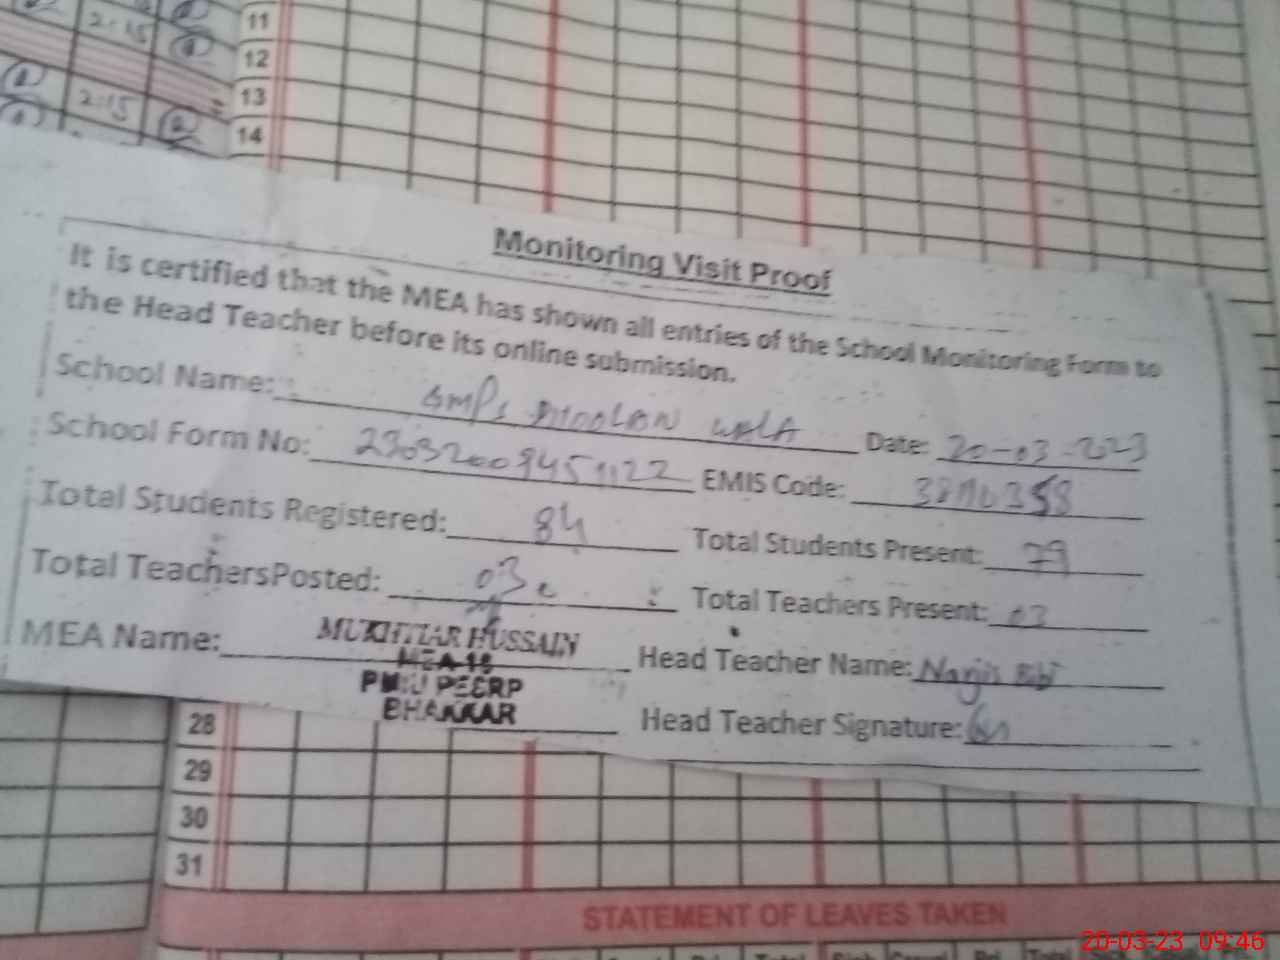 2:15
11
12
13
2:15
14
Monitoring Visit Proof
It is certified that the MEA has shown all entries of the School Monitoring Form to
the Head Teacher before its online submission.
School Name: GMPS WALA Date: 20-03-2023
School Form No: EMIS Code:
Total Students Registered: 84 Total Students Present: 79
Total TeachersPosted: 03 Total Teachers Present: 03
MEA Name: MUKHTIAR HUSSAIN Head Teacher Name: Narjis Bibi
PMIU PEERP
BHAKKAR Head Teacher Signature:
28
29
30
31
STATEMENT OF LEAVES TAKEN
20-03-23 09:46